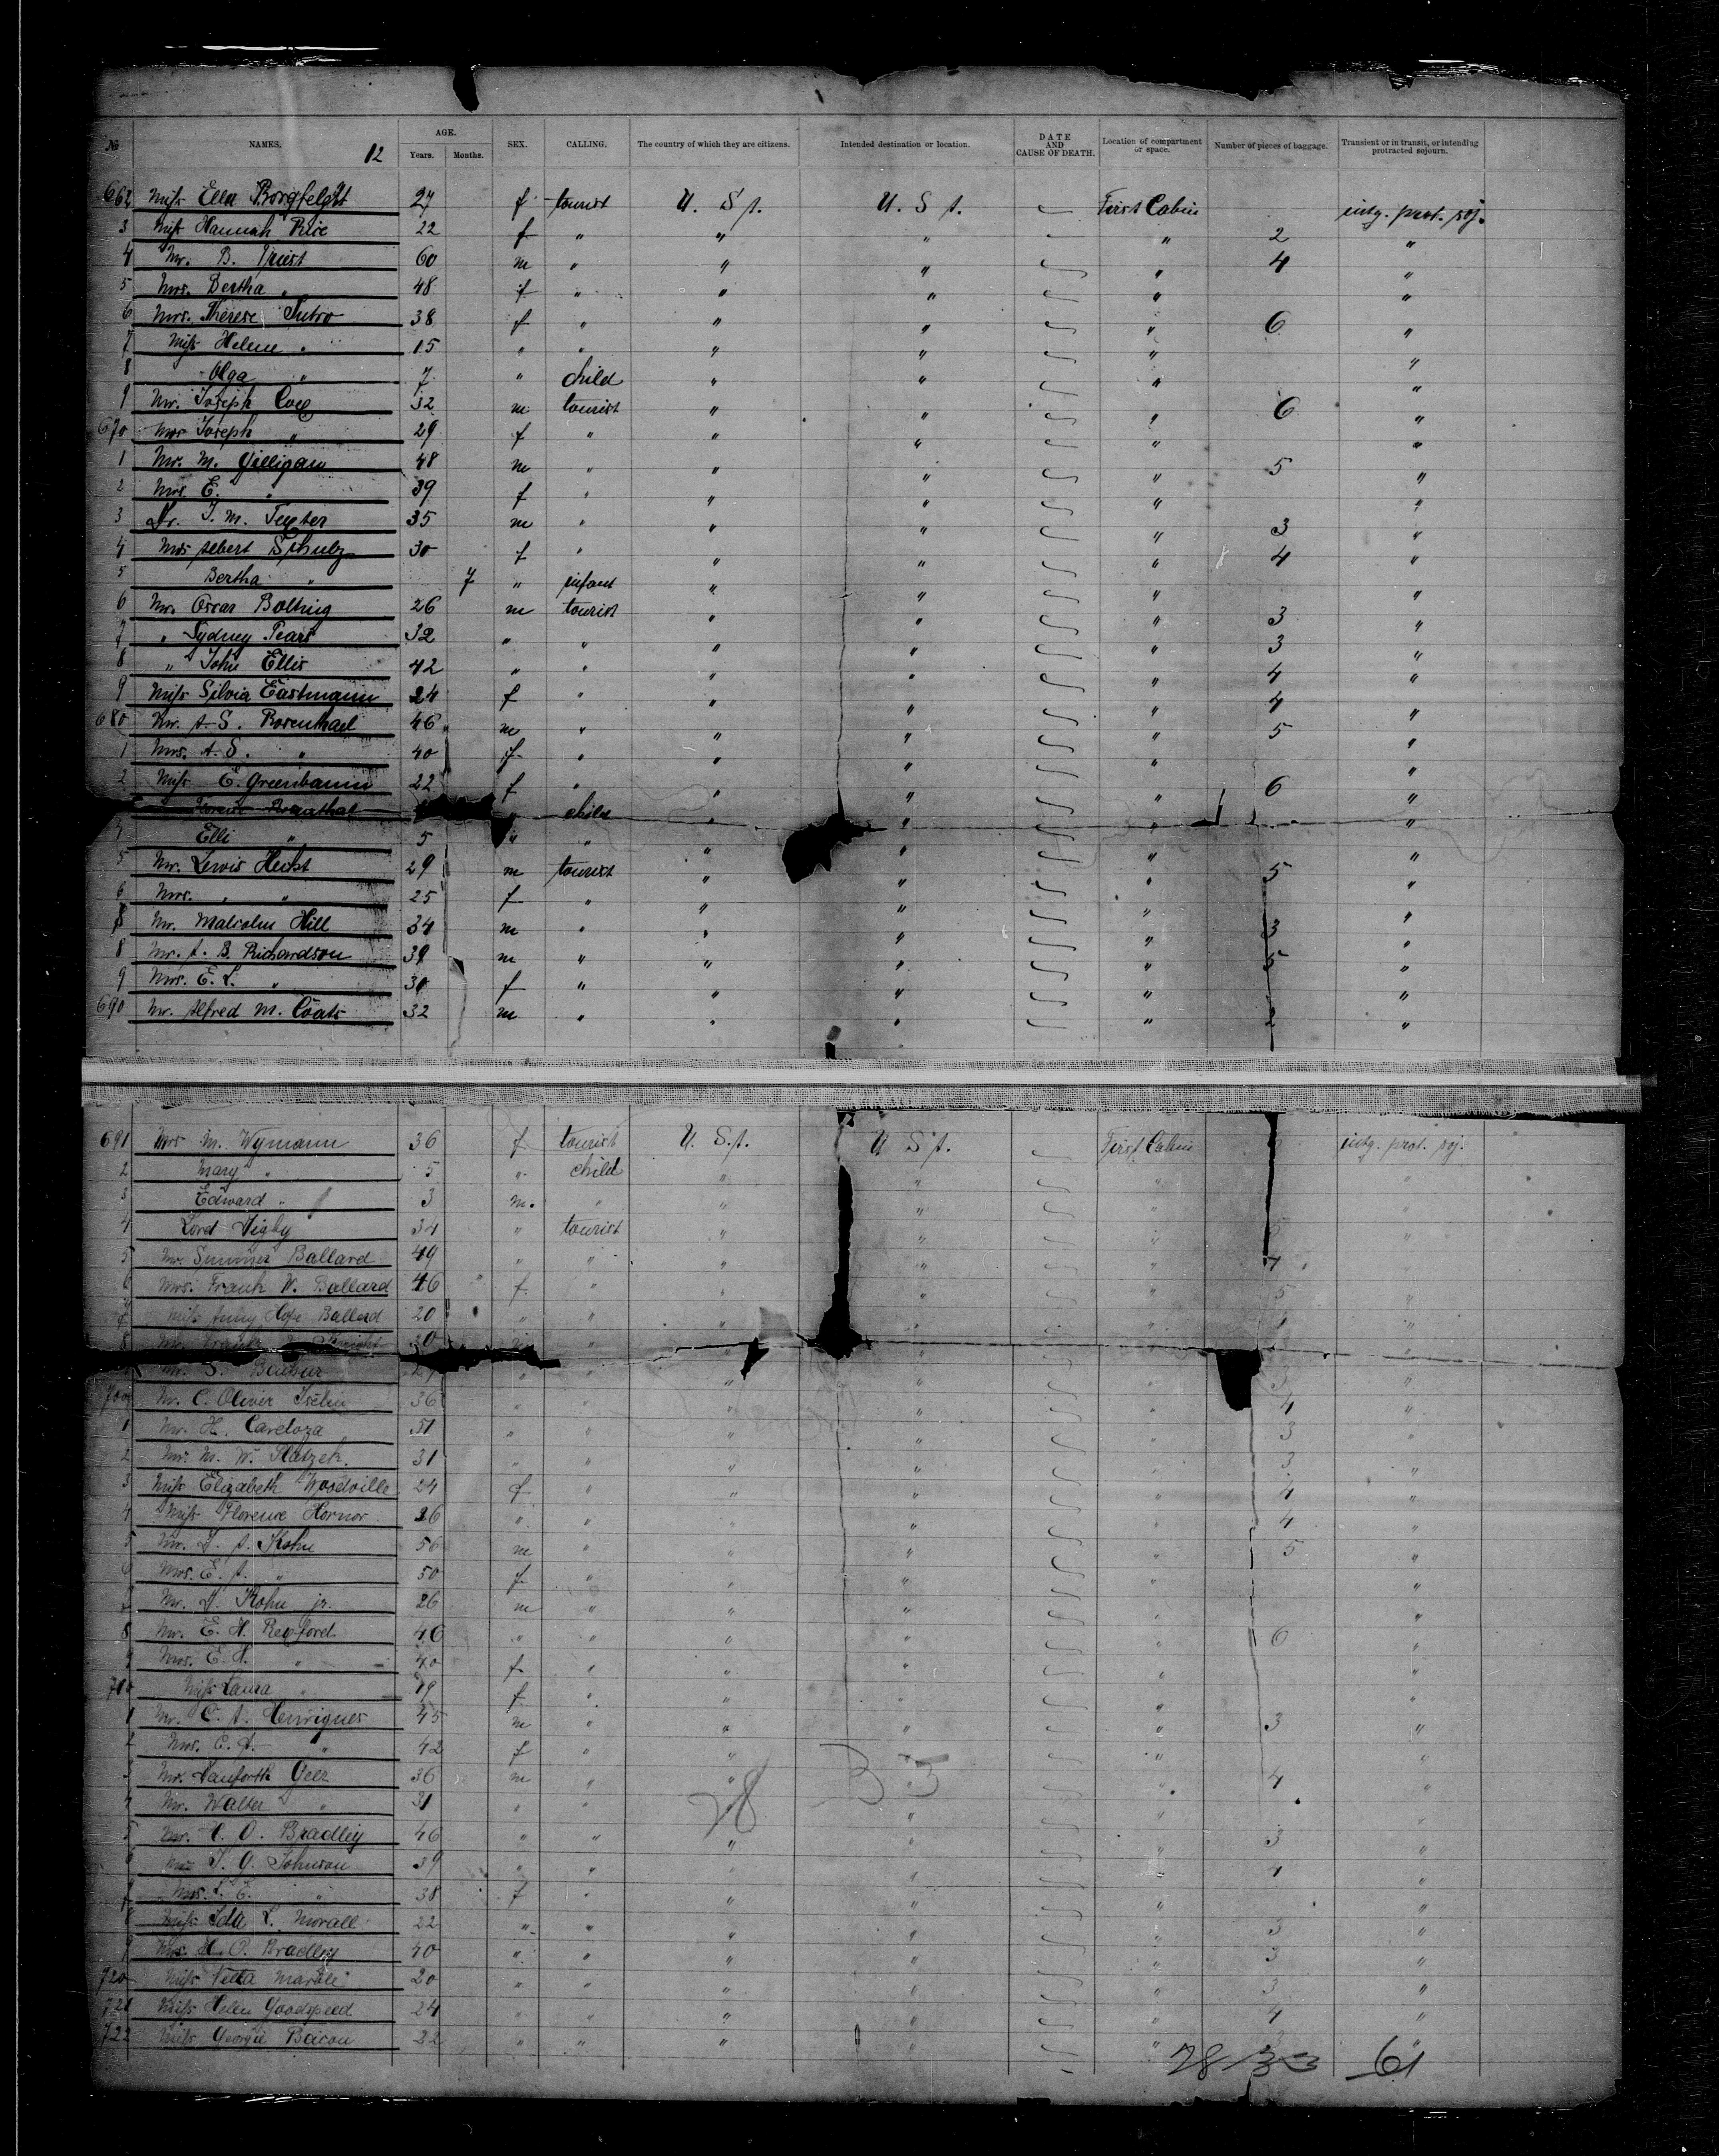 № NAMES. 12 AGE. Years. Months. SEX. CALLING. The country of which they are citizens. Intended destination or location. DATE AND CAUSE OF DEATH. Location of compartment or space. Number of pieces of baggage. Transient or in transit, or intending protracted sojourn.
662 Miss Ella Borgfeldt 27 f tourist U. S A. U. S A. First Cabin intg. prot. soj.
3 Miss Hannah Rice 22 f " " " " 2 "
4 Mr. B. Triest 60 m " " " " 4 "
5 Mrs. Bertha " 48 f " " " " "
6 Mrs. Therese Sutro 38 f " " " " 6 "
7 Miss Helene " 15 " " " " " "
8 Olga " 7 " child " " " "
9 Mr. Joseph Cox 32 m tourist " " " 6 "
670 Mrs Joseph " 29 f " " " " "
1 Mr. M. Gilligan 48 m " " " " 5 "
2 Mrs. E. " 39 f " " " " "
3 Dr. J. M. Texter 35 m " " " " 3 "
4 Mrs Albert Schulz 30 f " " " " 4 "
5 Bertha " 7 " infant " " " "
6 Mr. Oscar Bolting 26 m tourist " " " 3 "
7 " Sydney Pears 32 " " " " " 3 "
8 " John Ellis 42 " " " " " 4 "
9 Miss Silvia Eastmann 24 f " " " " 4 "
680 Mr. A. S. Rosenthael 46 m " " " " 5 "
1 Mrs. A. S. " 40 f " " " " "
2 Miss E. Greenbaum 22 f " " " " 6 "
Rosenthal child " " " "
4 Elli " 5 " " " " " "
5 Mr. Lewis Hecht 29 m tourist " " " 5 "
6 Mrs. " " 25 f " " " " "
Mr. Malcolm Hill 34 m " " " " 3 "
8 Mr. A. B. Richardson 39 m " " " " 5 "
9 Mrs. E. L. " 30 f " " " " "
690 Mr. Alfred M. Coats 32 m " " " " "
691 Mrs M. Wymann 36 f tourist U. S. A. U S A. First Cabin intg. prot. soj.
2 Mary " 5 " child " " " "
3 Edward " 3 m. " " " " "
4 Lord Digby 34 " tourist " " " 5 "
5 Mr. Sumner Ballard 49 " " " " " "
6 Mrs. Frank W. Ballard 46 f " " " " 5 "
7 Miss Hope Ballard 20 " " " " " "
8 Mr. Frank 30 " " " " "
Mr. S. Bachur " " " " " 3 "
700 Mr. C. Oliver Iselin 36 " " " " " 4 "
1 Mr. H. Cardoza 51 " " " " " 3 "
2 Mr. M. W. Platzek 31 " " " " " 3 "
3 Miss Elizabeth Woodville 24 f " " " " 4 "
4 Miss Florence Hornor 26 " " " " " 4 "
5 Mr. D. A. Kohn 56 m " " " " 5 "
6 Mrs. E. A. " 50 f " " " " "
7 Mr. D. Kohn jr. 26 m " " " " "
8 Mr. E. H. Rexford 40 " " " " " 6 "
9 Mrs. E. H. " 40 f " " " " "
710 Miss Laura " 19 f " " " " "
1 Mr. C. A. Henriques 45 m " " " " 3 "
2 Mrs. C. A. " 42 f " " " " "
3 Mr. Danforth Geer 36 m " " " " 4 "
4 Mr. Walter " 31 " " " " " "
28 33
5 Mr. H. O. Bradley 46 " " " " " 3 "
6 J. G. Johnson 39 " " " " " 4 "
7 Mrs. L. E. " 38 f " " " " "
8 Miss Ida L. Morall 22 " " " " " 3 "
9 Mrs. H. O. Bradley 40 " " " " " 3 "
720 Miss Netta 20 " " " " " 3 "
721 Miss Helen Goodspeed 24 " " " " " 4 "
722 Miss Georgie Bacon 22 " " " " " "
28 33 61